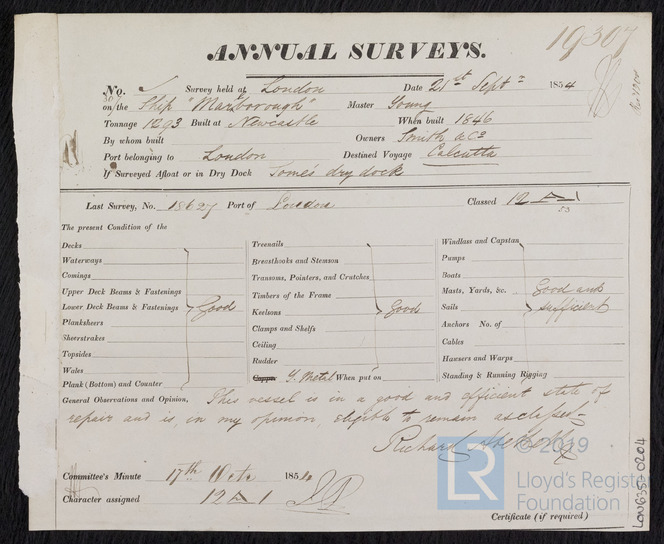 19307
ANNUAL SURVEYS.
No. Survey held at London Date 21st Septr 1854
on the Ship "Marlborough" Master Young
Tonnage 1293 Built at Newcastle When built 1846
By whom built Owners Smith & Co
Port belonging to London Destined Voyage Calcutta
If Surveyed Afloat or in Dry Dock Tome's dry dock
Last Survey, No. 18627 Port of London Classed 12 A 1
53
The present Condition of the
Decks
Waterways
Comings
Upper Deck Beams & Fastenings
Lower Deck Beams & Fastenings Good
Planksheers
Sheerstrakes
Topsides
Wales
Plank (Bottom) and Counter
Treenails
Breasthooks and Stemson
Transoms, Pointers, and Crutches
Timbers of the Frame
Keelsons Good
Clamps and Shelfs
Ceiling
Rudder
Copper Y. Metal When put on
Windlass and Capstan
Pumps
Boats
Masts, Yards, &c. Good and
Sails sufficient
Anchors No. of
Cables
Hawsers and Warps
Standing & Running Rigging
General Observations and Opinion, This vessel is in a good and efficient state of
repair and is, in my opinion, eligible to remain as classed
Richard
Committee's Minute 17th Octr 1854
Character assigned 12 A 1
Certificate (if required)
LON635-0204
© 2019
LR
Lloyd's Register
Foundation